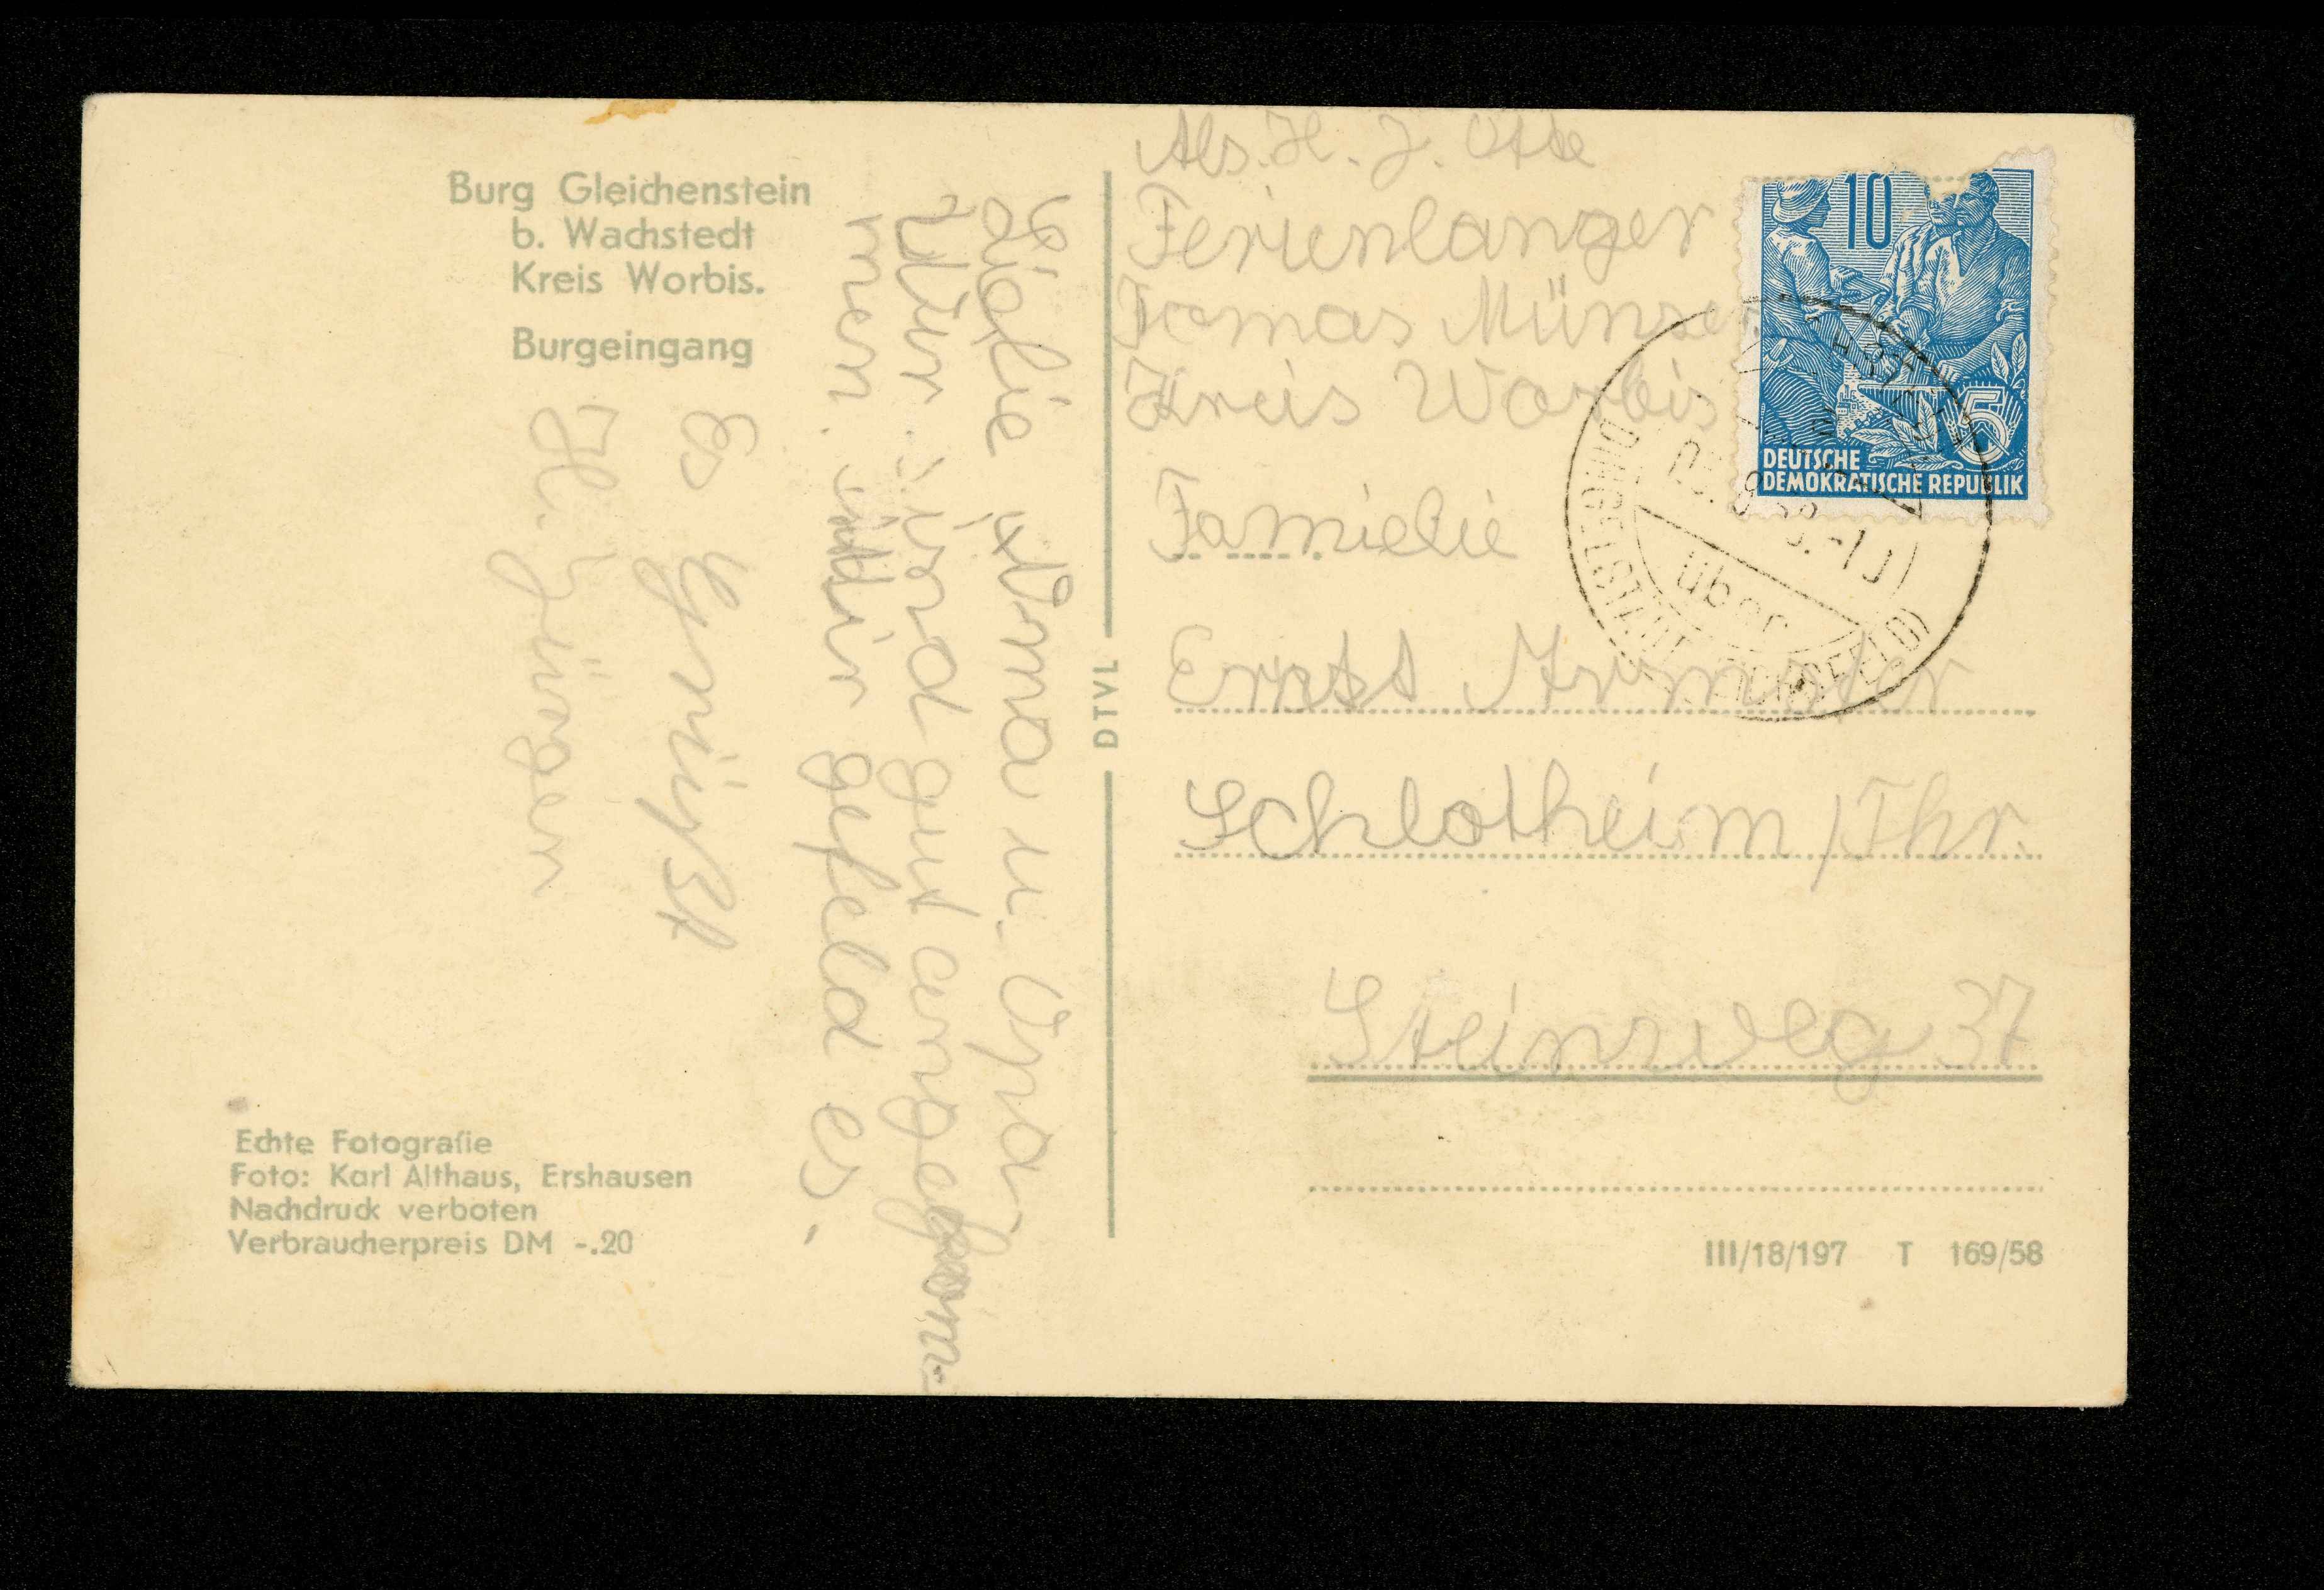 Burg Gleichenstein
b. Wachstedt
Kreis Worbis.
Burgeingang
Liebe Oma u. Opa!
Wir sind gut angekom-
men. Mir gefeld es.
Es Grüßt
H. Jürgen
Echte Fotografie
Foto: Karl Althaus, Ershausen
Nachdruck verboten
Verbraucherpreis DM -.20
DTVL
Abs. H. J. Otte
Ferienlanger
Tomas Münser
Kreis Worbis
10
5
DEUTSCHE
DEMOKRATISCHE REPUBLIK
über
DINGELSTÄDT (EICHSFELD)
Familie
Ernst
Schlotheim /Thr.
Steinweg 37
III/18/197 T 169/58